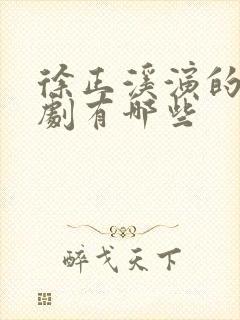 徐正溪演的
劇有哪些
醉戈天下